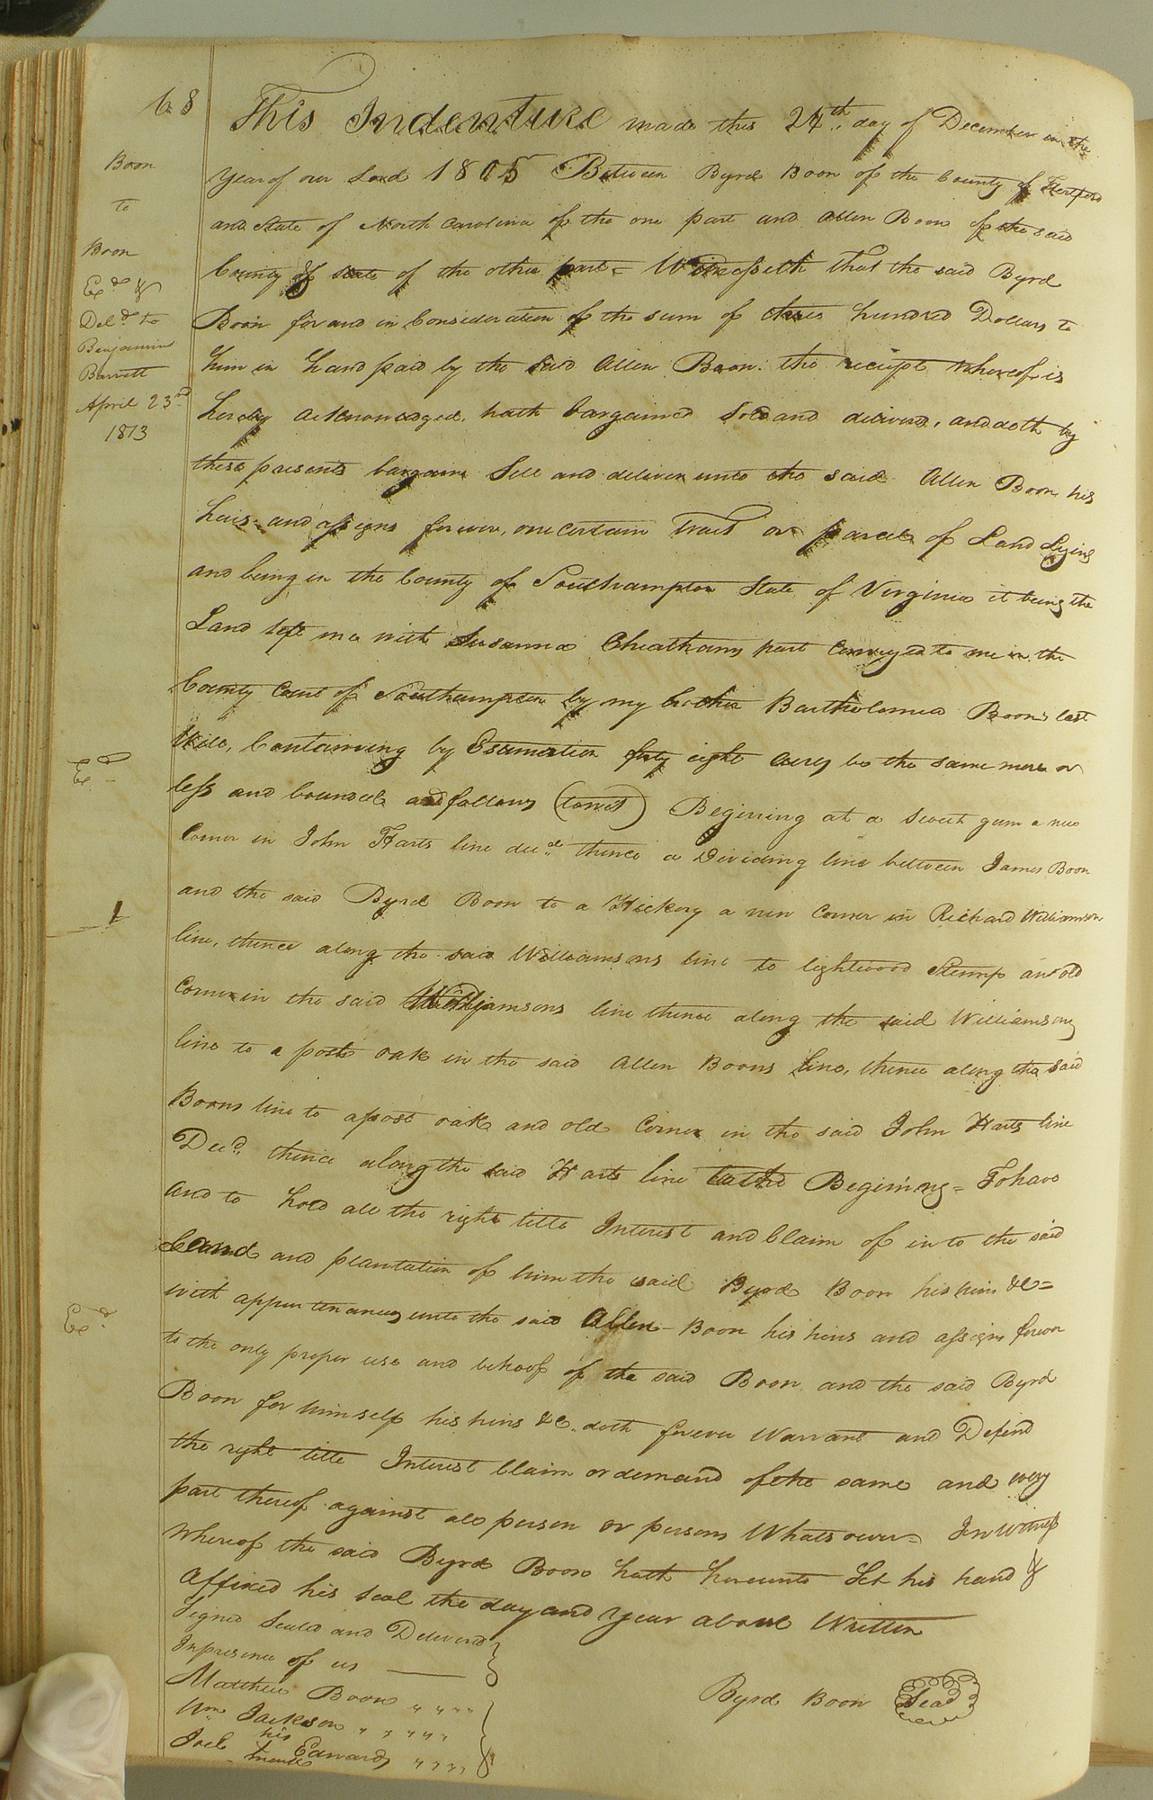 68
Boon
to
Boon
Exd. &
Deld. to
Benjamin
Barrett
April 23rd
1813
This Indenture made this 24th. day of December in the
Year of our Lord 1805 Between Byrd Boon of the County of Hertford
and State of North Carolina of the one part and Allen Boon of the said
County & state of the other part = Witnesseth that the said Byrd
Boon for and in Consideration of the sum of three hundred Dollars to
him in hand paid by the said Allen Boon. the receipt whereof is
hereby acknowledged, hath bargained Sold and delivered, and doth by
these presents bargain Sell and deliver unto the said Allen Boon his
heirs and assigns forever, one certain tract or parcel of Land Lying
and being in the County of Southampton State of Virginia it being the
Land left me with Susanna Cheathams part conveyed to me in the
County Court of Southampton by my brother Bartholomew Boons last
Will, Containing by Esumation forty eight acres be the same more or
Exd.
less and bounded as follows (towit) Begining at a Sweet gum a new
Corner in John Harts line decd. thence a Dividing line between James Boon
and the said Byrd Boon to a Hickory a new Corner in Richard Williamson
line, thence along the said Williamsons line to lightwood Stump an old
Corner in the said Williamsons line thence along the said Williamsons
line to a post oak in the said Allen Boons line, thence along the said
Boons line to a post oak and old Corner in the said John Harts line
Decd. thence along the said Harts line to the Begining = To have
and to hold all the right title Interest and Claim of in to the said
Land and plantation of him the said Byrd Boon his heirs &c =
with appurtenances unto the said Allen Boon his heirs and assigns forever
Exd.
to the only proper use and behoof of the said Boon and the said Byrd
Boon for himself his heirs &c. doth forever Warrant and Defend
the right title Interest Claim or demand of the same and every
part thereof against all person or persons Whatsoever = In witness
Whereof the said Byrd Boon hath hereunto Set his hand &
affixed his seal the day and Year above Written
Signed Sealed and Delivered
In presence of us
Byrd Boon Seal
Matthew Boon
Wm. Jackson
his
Joel Edwards
mark